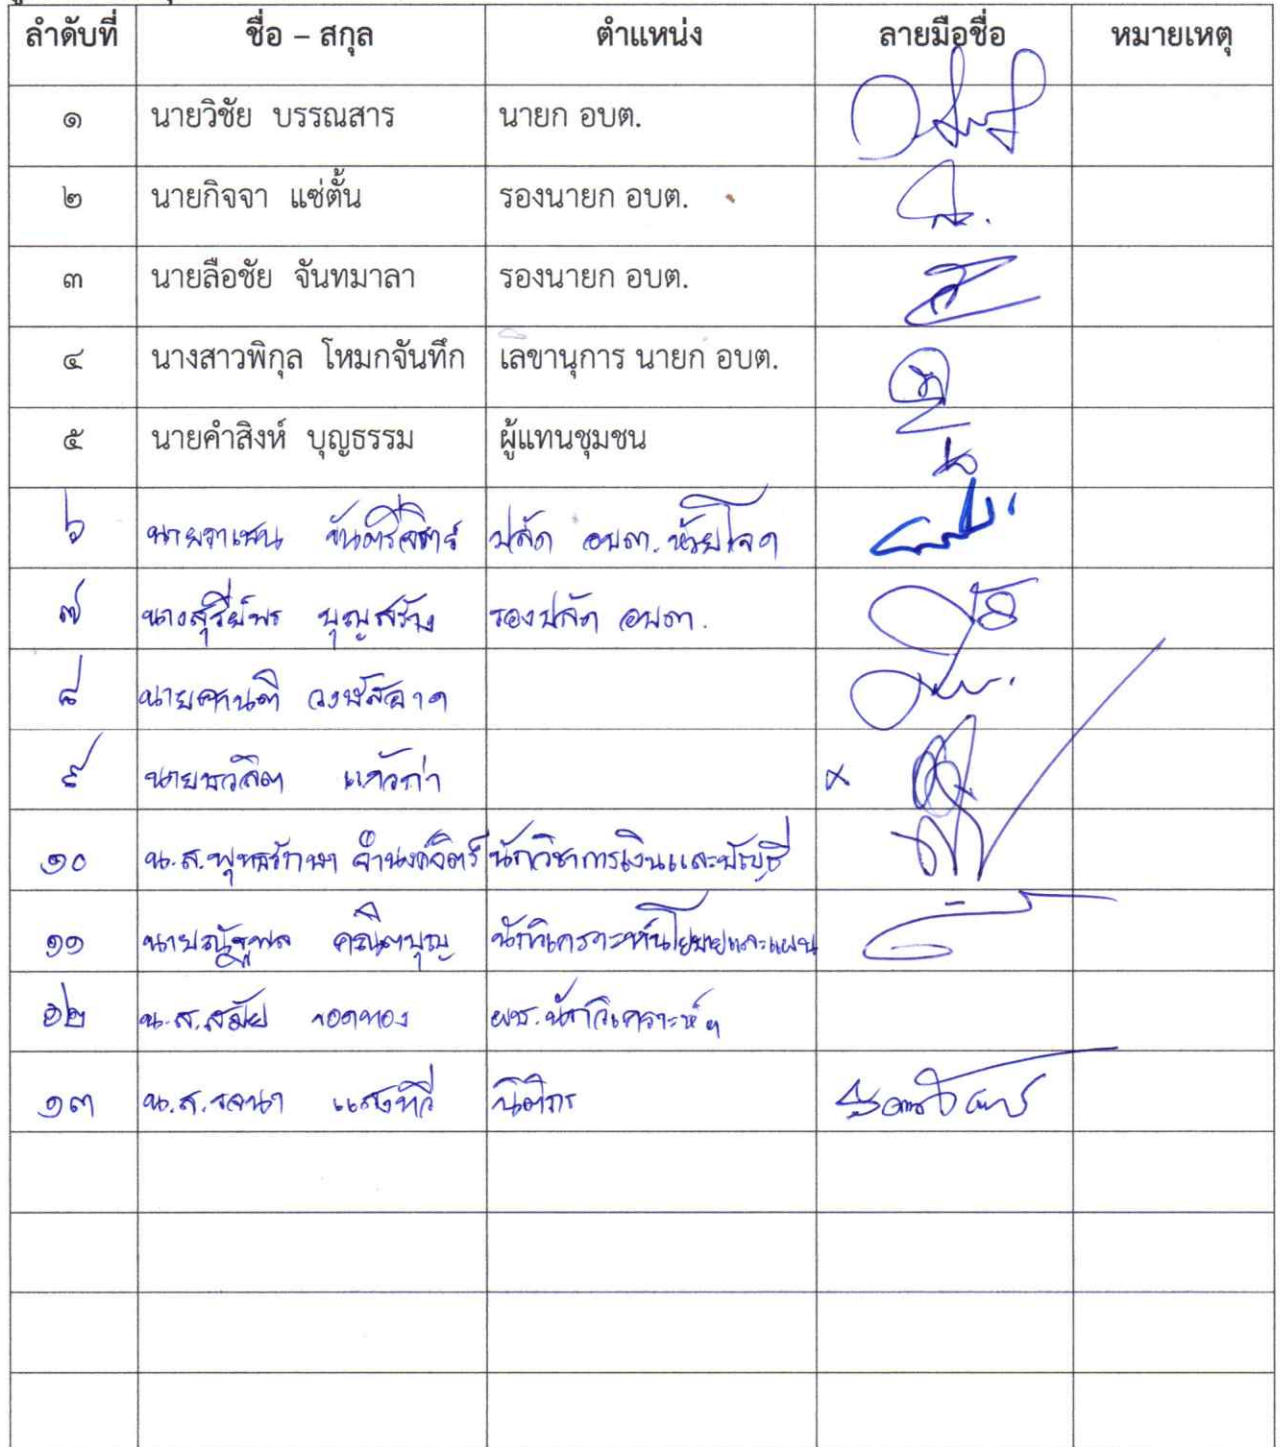 ลำดับที่ ชื่อ – สกุล ตำแหน่ง ลายมือชื่อ หมายเหตุ
๑ นายวิชัย บรรณสาร นายก อบต.
๒ นายกิจจา แซ่ตั้น รองนายก อบต.
๓ นายลือชัย จันทมาลา รองนายก อบต.
๔ นางสาวพิกุล โหมกจันทึก เลขานุการ นายก อบต.
๕ นายคำสิงห์ บุญธรรม ผู้แทนชุมชน
๖ ปลัด อบต. ห้วยโจด
๗ นางสุรีย์พร บุญสร้าง รองปลัด อบต.
๘ นายศานติ วงษ์สอาด
๙ นายชวลิต แก้วก่ำ
๑๐ น.ส.พุทธรักษา จำนงค์จิตร์ นักวิชาการเงินและบัญชี
๑๑ นายณัฐพล คณิตบุญ นักวิเคราะห์นโยบายและแผน
๑๒ น.ส.สมัย ผช.นักวิเคราะห์ฯ
๑๓ น.ส.รจนา แสงทวี นิติกร